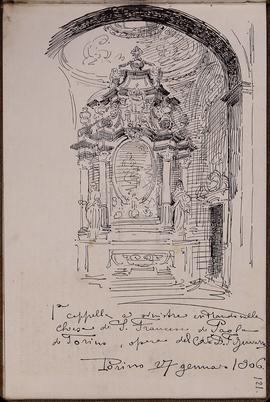 1ª cappella a sinistra entrando nella
chiesa di S. Francesco di Paola
di Torino, opera del
Torino 27 gennaio 1906.
121